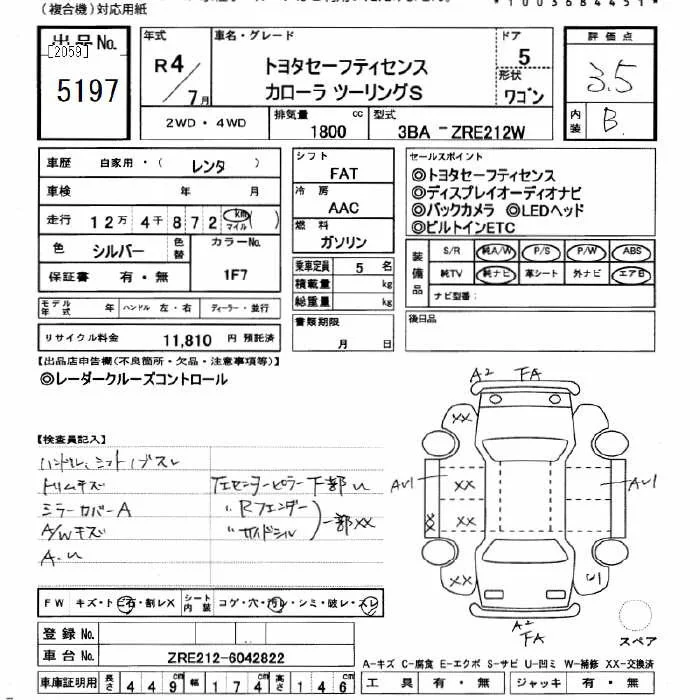 (複合機)対応用紙
出品No.
[2059]
5197
年式
R4/7月
車名・グレード
トヨタセーフティセンス
カローラ ツーリングS
ドア
5
形状
ワゴン
評価点
3.5
内装
B
2WD・4WD
排気量
1800 cc
型式
3BA - ZRE212W
車歴 自家用・( レンタ )
車検 年 月
走行 12万4千872 km マイル ( )
色 シルバー 色替 カラーNo. 1F7
保証書 有・無
モデル年式 年 ハンドル 左・右 ディーラー・並行
リサイクル料金 11,810 円 預託済
シフト
FAT
冷房
AAC
燃料
ガソリン
乗車定員 5 名
積載量 kg
総重量 kg
書類期限
月 日
セールスポイント
◎トヨタセーフティセンス
◎ディスプレイオーディオナビ
◎バックカメラ ◎LEDヘッド
◎ビルトインETC
装備品
S/R 純A/W P/S P/W ABS
純TV 純ナビ 革シート 外ナビ エアB
ナビ型番:
後日品
【出品店申告欄(不良箇所・欠品・注意事項等)】
◎レーダークルーズコントロール
【検査員記入】
ハンドル、シフト/ブスレ
トリムキズ
ミラーカバーA
A/Wキズ
A.U
左センターピラー下部U
〃 Rフェンダー
〃 サイドシル
一部XX
A2 FA
XX
AU1 XX AU1
XX XX
XX U1
A2
FA
スペア
FW キズ・トビ石・割レX シート内装 コゲ・穴・汚レ・シミ・破レ・スレ
登録No.
車台No. ZRE212-6042822
車庫証明用 長さ 449cm 幅 174cm 高さ 146cm
A-キズ C-腐食 E-エクボ S-サビ U-凹ミ W-補修 XX-交換済
工具 有・無 ジャッキ 有・無